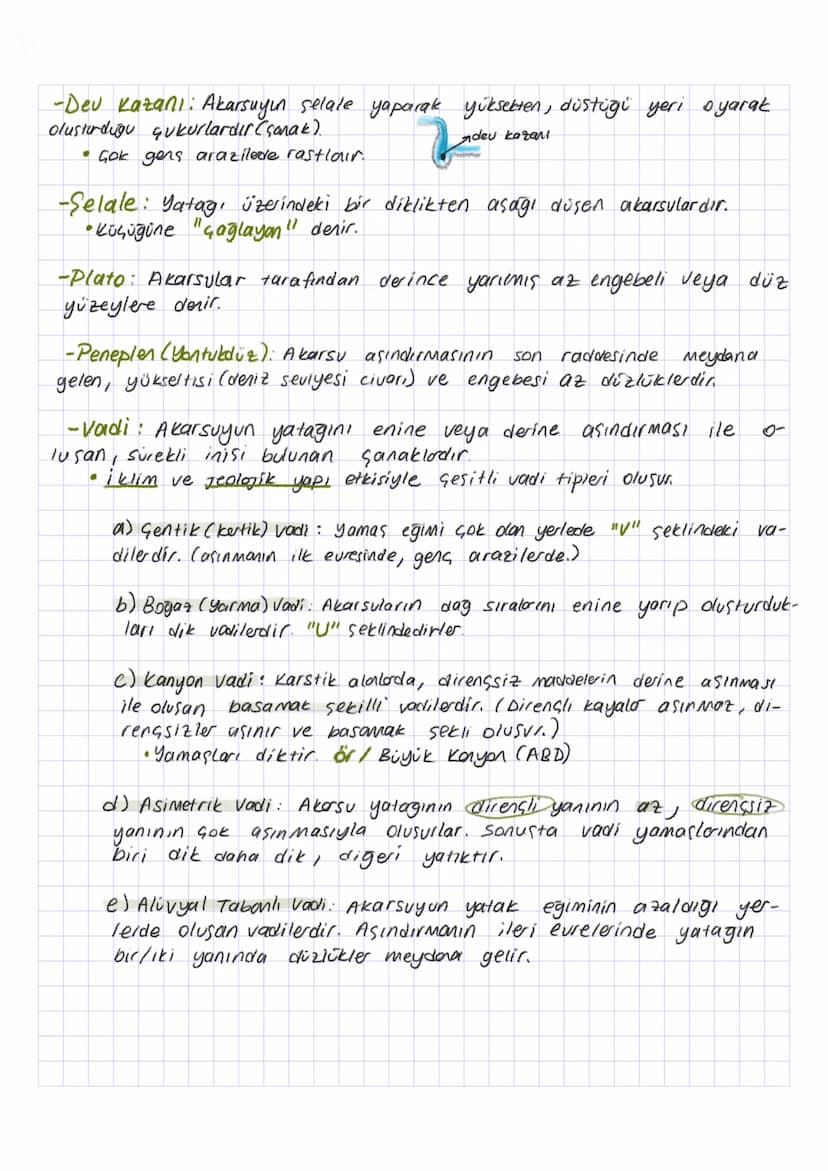 -Dev Kazanı: Akarsuyun şelale yaparak yüksekten, düştüğü yeri oyarak
oluşturduğu çukurlardır (çanak).
dev kazanı
• Çok genç arazilerde rastlanır.
-Şelale: Yatağı üzerindeki bir diklikten aşağı düşen akarsulardır.
• Küçüğüne "çağlayan" denir.
-Plato: Akarsular tarafından derince yarılmış az engebeli veya düz
yüzeylere denir.
-Peneplen (Yontukdüz): Akarsu aşındırmasının son raddesinde meydana
gelen, yükseltisi (deniz seviyesi civarı) ve engebesi az düzlüklerdir.
-Vadi: Akarsuyun yatağını enine veya derine aşındırması ile o-
luşan, sürekli inişi bulunan çanaklardır.
• İklim ve jeolojik yapı etkisiyle çeşitli vadi tipleri oluşur.
a) Çentik (kertik) Vadi: Yamaç eğimi çok olan yerlede "V" şeklindeki va-
dilerdir. (aşınmanın ilk evresinde, genç arazilerde.)
b) Boğaz (Yarma) Vadi: Akarsuların dağ sıralarını enine yarıp oluşturduk-
ları dik vadilerdir. "U" şeklindedirler.
c) Kanyon Vadi: Karstik alanlarda, dirençsiz maddelerin derine aşınması
ile oluşan basamak şekilli vadilerdir. (Dirençli kayalar aşınmaz, di-
rençsizler aşınır ve basamak şekli oluşur.)
• Yamaçları diktir. ör/ Büyük Kanyon (ABD)
d) Asimetrik Vadi: Akarsu yatağının dirençli yanının az, dirençsiz
yanının çok aşınmasıyla oluşurlar. Sonuçta vadi yamaçlarından
biri dik daha dik, diğeri yatıktır.
e) Alüvyal Tabanlı Vadi: Akarsuyun yatak eğiminin azaldığı yer-
lerde oluşan vadilerdir. Aşındırmanın ileri evrelerinde yatağın
bir/iki yanında düzlükler meydana gelir.